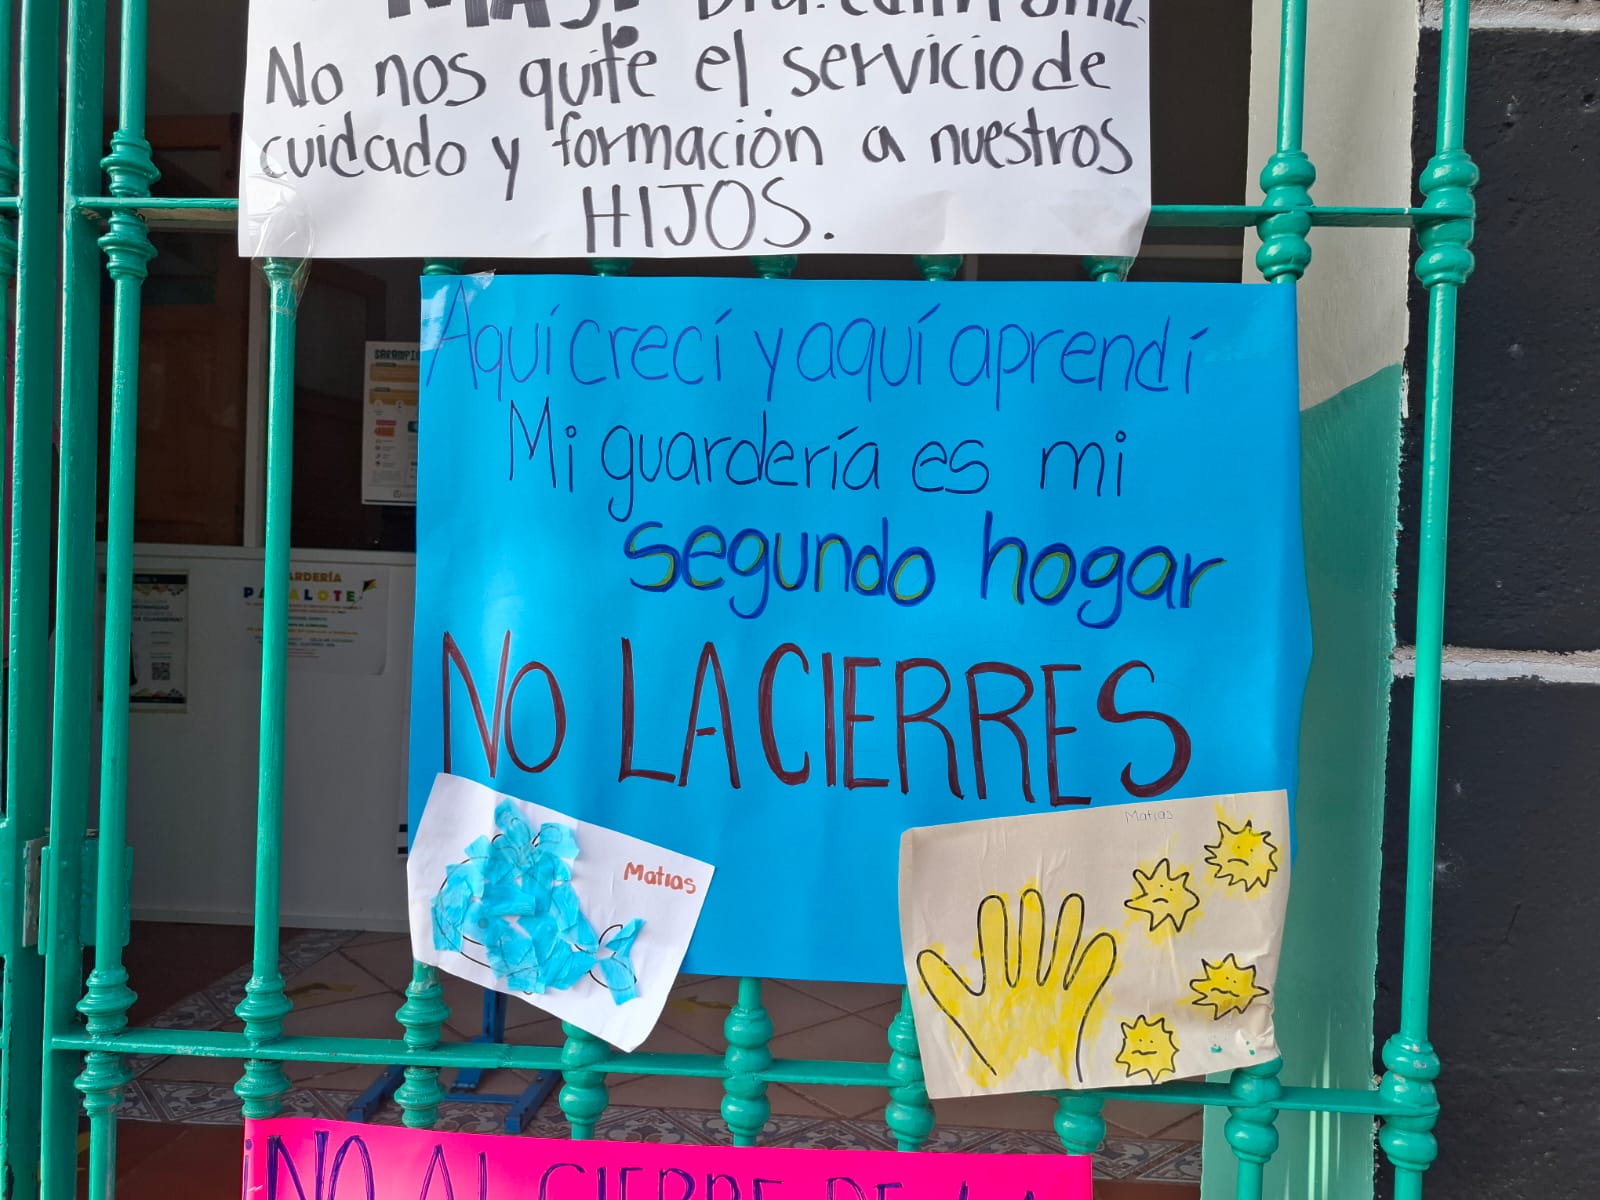 No nos quite el servicio de
cuidado y formación a nuestros
HIJOS.
Aquí crecí y aquí aprendí
Mi guardería es mi
segundo hogar
NO LA CIERRES
Matias
Matias
SARAMPIÓ
ARDERÍA
PA ALOTE
¡NO AL CIERRE DE LA